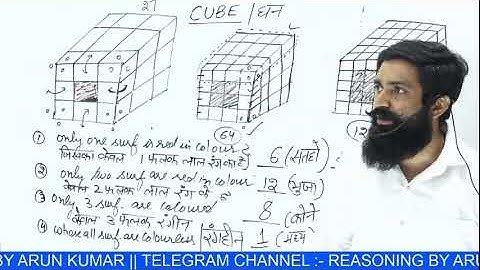 27
CUBE / घन
64
12
① only one surf is red in colour ?
जिसका केवल 1 फलक लाल रंग का है
6 (सतह)
② only two surf are red in colour
केवल 2 फलक लाल रंग के
12 (भुजा)
③ only 3 surf. are coloured
केवल 3 फलक रंगीन
8 (कोने)
④ where all surf are colourless / रंगहीन
1 (मध्य)
BY ARUN KUMAR || TELEGRAM CHANNEL :- REASONING BY ARU